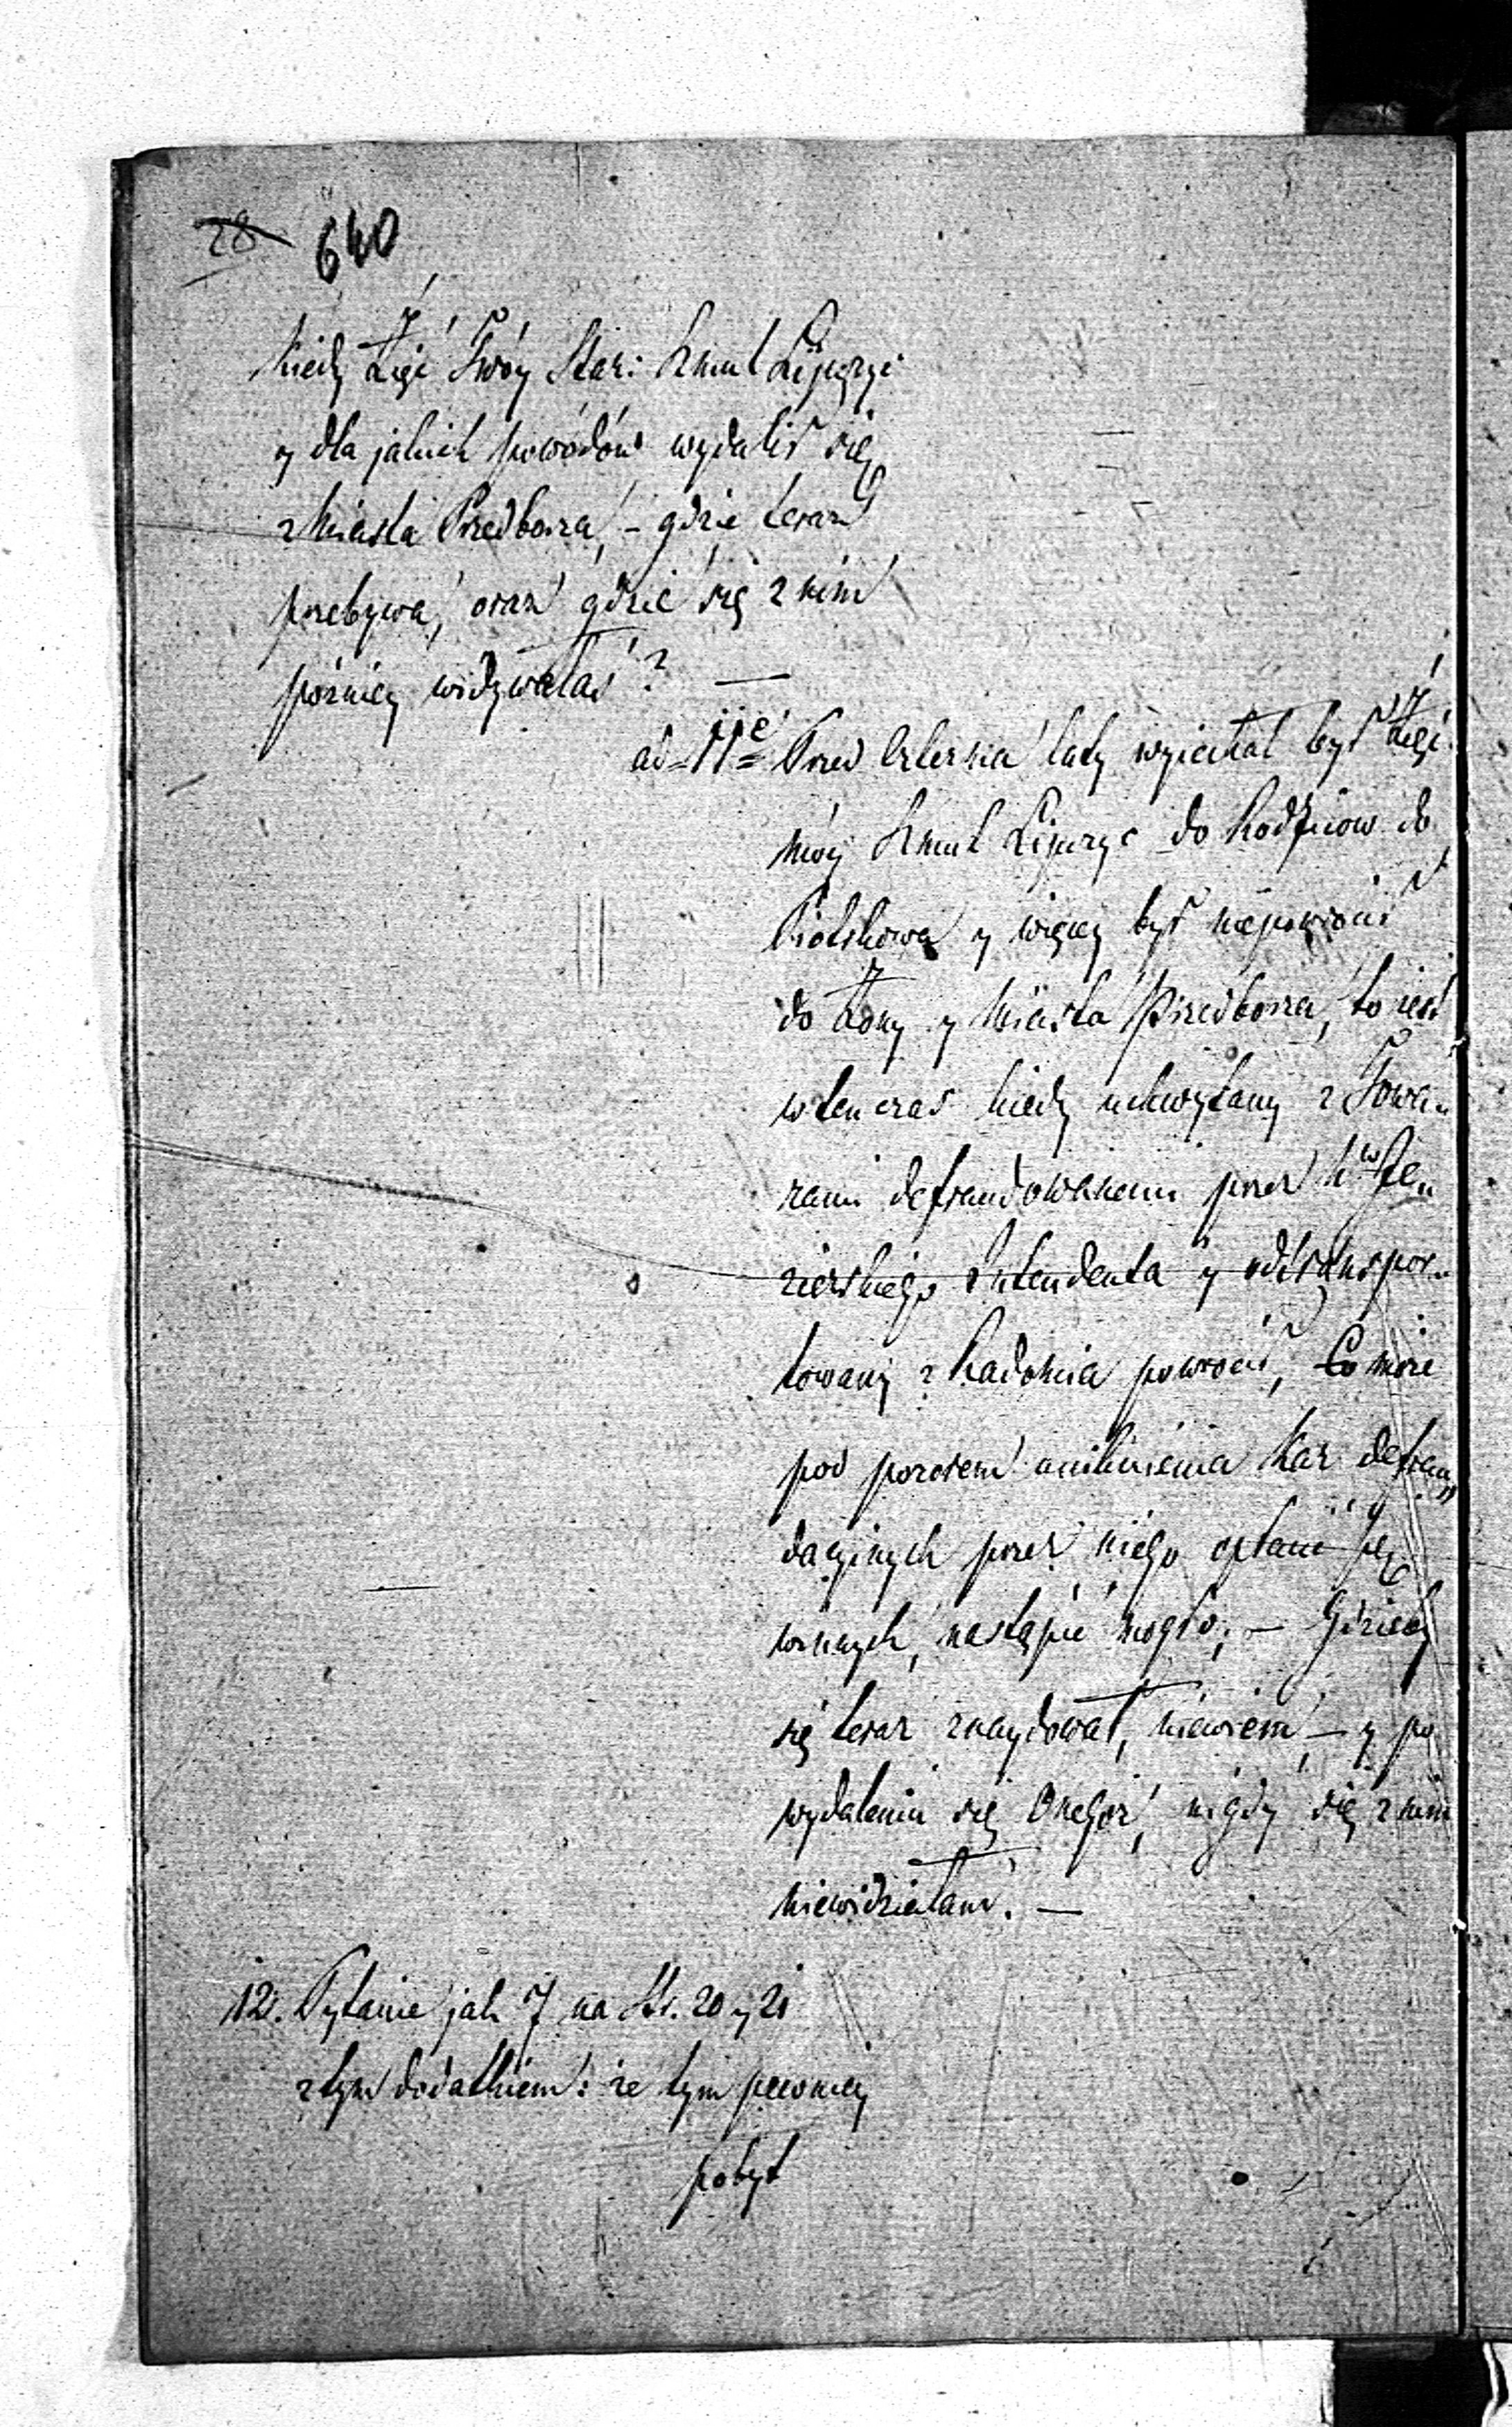 28 640
kiedy Zięć Twóy Star: Szmul Lijurzyc
y dla jakich powodów wydalił się
z Miasta Przedborza, – gdzie teraz
przebywa, oraz gdzie się z nim
późniey widywałaś? —
ad 11e Przed czterma laty wyiechał był Zięć
móy Szmul Lijurzyc do Rodziców do
Piotrkowa y więcey był niepowrócił
do Żony y Miasta Przedborza, to iest
wten czas kiedy uchwytany z Towa„
rami defraudowanemi przez
Intendenta y odtranspor„
towany z Radomia powrócił, Co może
pod pozorem uniknienia Kar defrau„
dacyjnych przez niego opłacić się
winnych, nastąpić mogło; – Gdzieby
się teraz znaydował, niewiem, – y po
wydaleniu się Onegoż, nigdy się z nim
niewidziałam. —
12. Pytanie jak 7 na Str. 20 y 21
z tym dodatkiem: że tym pewniey
pobyt